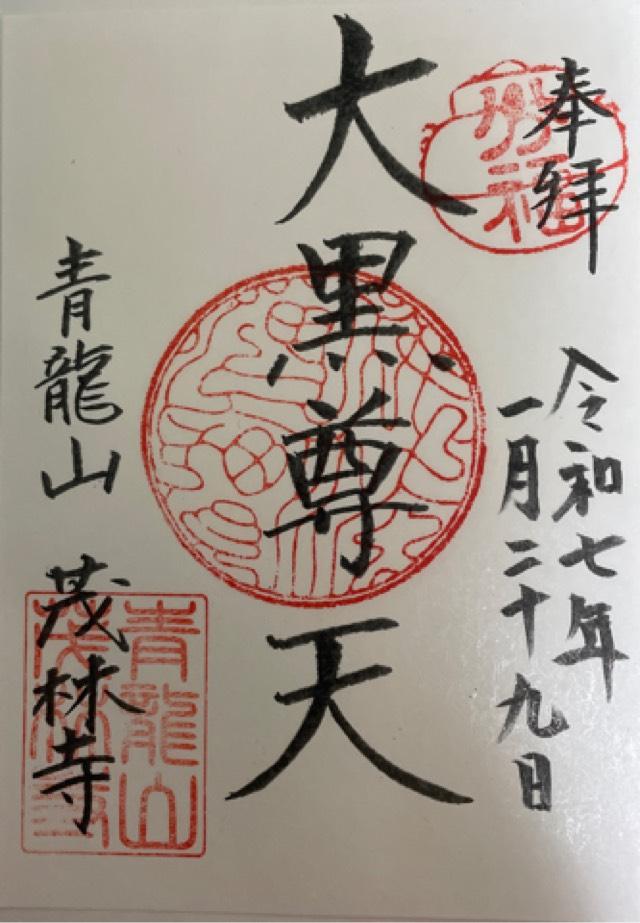 奉拝
令和七年
一月二十九日
大黒尊天
青龍山 茂林寺
青龍山
茂林寺